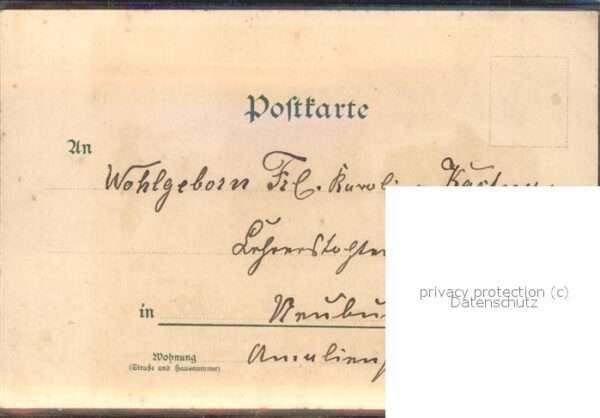 Postkarte
An
Wohlgeborn Frl. Karoli
Lehrerstochter
in Neubu
Wohnung
(Straße und Hausnummer)
Amalien
privacy protection (c)
Datenschutz